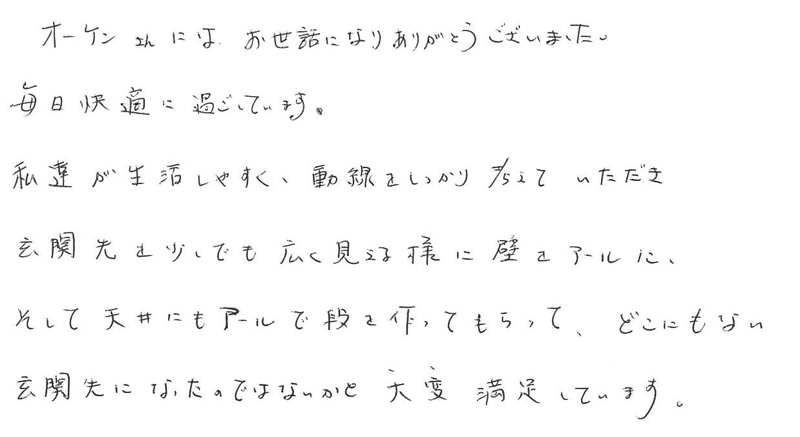 オーケンさんには、お世話になりありがとうございました。
毎日快適に過ごしています。
私達が生活しやすく、動線をしっかり考えていただき
玄関先を少しでも広く見える様に壁をアールに、
そして天井にもアールで段を作ってもらって、どこにもない
玄関先になったのではないかと大変満足しています。